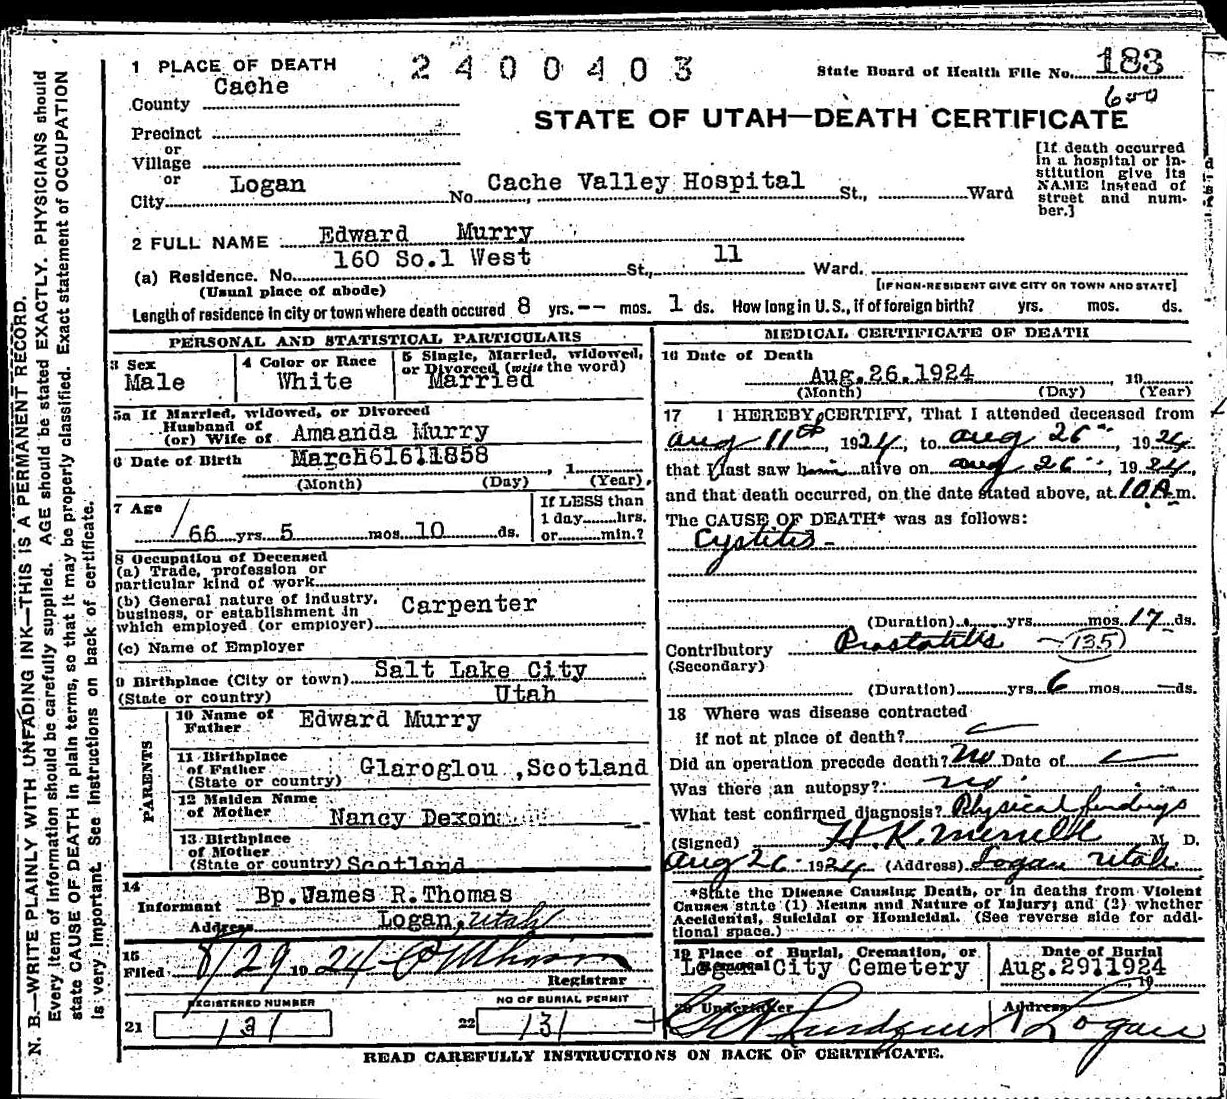 1 PLACE OF DEATH
2400403
State Board of Health File No. 183
County Cache
600
STATE OF UTAH—DEATH CERTIFICATE
Precinct
or
Village
or
City Logan No. Cache Valley Hospital St., Ward
[If death occurred
in a hospital or in-
stitution give its
NAME instead of
street and num-
ber.]
2 FULL NAME Edward Murry
(a) Residence. No. 160 So.1 West St., 11 Ward.
(Usual place of abode)
[IF NON-RESIDENT GIVE CITY OR TOWN AND STATE]
Length of residence in city or town where death occured 8 yrs. -- mos. 1 ds. How long in U.S., if of foreign birth? yrs. mos. ds.
PERSONAL AND STATISTICAL PARTICULARS
3 Sex
Male
4 Color or Race
White
5 Single, Married, widowed,
or Divorced (write the word)
Married
5a If Married, widowed, or Divorced
Husband of
(or) Wife of Amaanda Murry
6 Date of Birth March 16 1858, 1
(Month) (Day) (Year)
7 Age
66 yrs. 5 mos. 10 ds.
If LESS than
1 day hrs.
or min.?
8 Occupation of Deceased
(a) Trade, profession or
particular kind of work
(b) General nature of industry,
business, or establishment in
which employed (or employer) Carpenter
(c) Name of Employer
9 Birthplace (City or town) Salt Lake City
(State or country) Utah
PARENTS
10 Name of
Father Edward Murry
11 Birthplace
of Father
(State or country) Glaroglou ,Scotland
12 Maiden Name
of Mother Nancy Dexon
13 Birthplace
of Mother
(State or country) Scotland
14
Informant Bp.James R.Thomas
Address Logan, Utah
15
Filed 8/29 1924
Registrar
REGISTERED NUMBER
21 131
NO OF BURIAL PERMIT
22 131
MEDICAL CERTIFICATE OF DEATH
16 Date of Death
Aug.26.1924, 19
(Month) (Day) (Year)
17 I HEREBY CERTIFY, That I attended deceased from
Aug 11th, 1924, to Aug 26", 1924
that I last saw him alive on Aug 26", 1924,
and that death occurred, on the date stated above, at 10 A.m.
The CAUSE OF DEATH* was as follows:
Cystitis-
(Duration) yrs. mos. 17 ds.
Contributory Prostatitis - 135
(Secondary)
(Duration) yrs. 6 mos. — ds.
18 Where was disease contracted
if not at place of death?
Did an operation precede death? No Date of
Was there an autopsy? no.
What test confirmed diagnosis? Physical findings
(Signed) H. K. Merrill M. D.
Aug 26. 1924 (Address) Logan Utah
*State the Disease Causing Death, or in deaths from Violent
Causes state (1) Means and Nature of Injury; and (2) whether
Accidental, Suicidal or Homicidal. (See reverse side for addi-
tional space.)
19 Place of Burial, Cremation, or
Removal
Logan City Cemetery
Date of Burial
Aug.29.1924
19
20 Undertaker
Address
Logan
READ CAREFULLY INSTRUCTIONS ON BACK OF CERTIFICATE.
N. B.—WRITE PLAINLY WITH UNFADING INK—THIS IS A PERMANENT RECORD.
Every item of information should be carefully supplied. AGE should be stated EXACTLY. PHYSICIANS should
state CAUSE OF DEATH in plain terms, so that it may be properly classified. Exact statement of OCCUPATION
is very important. See instructions on back of certificate.